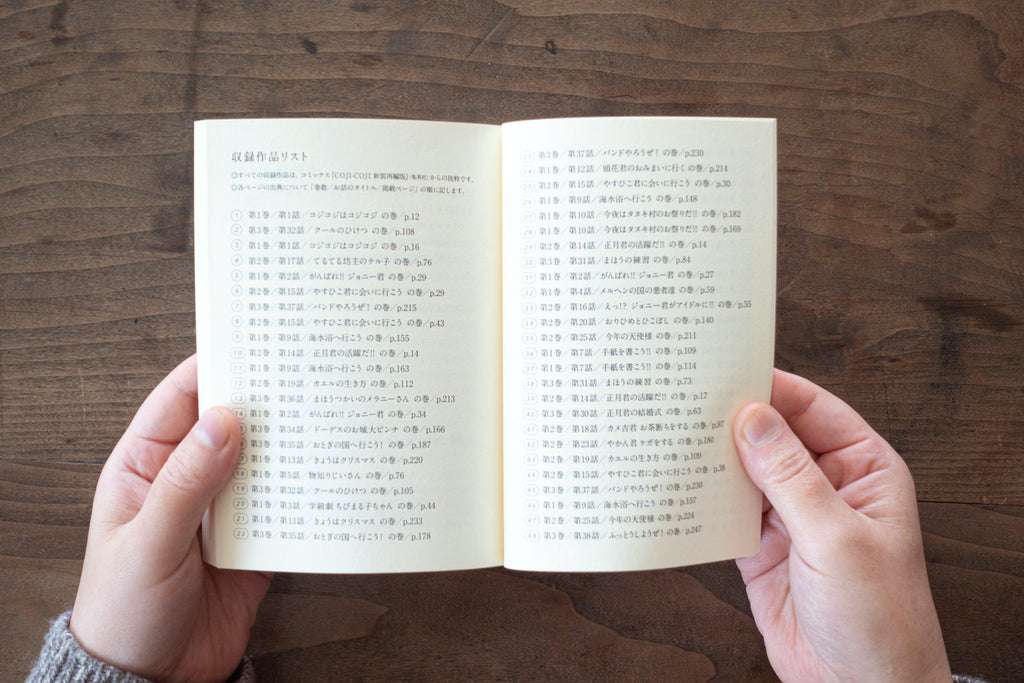 収録作品リスト
◎すべての収録作品は、コミックス『COJI-COJI 新装再編版』(集英社)からの抜粋です。
◎各ページの出典について「巻数/お話のタイトル/掲載ページ」の順に記します。
1 第1巻/第1話/コジコジはコジコジ の巻/p.12
2 第3巻/第32話/クールのひけつ の巻/p.108
3 第1巻/第1話/コジコジはコジコジ の巻/p.16
4 第2巻/第17話/てるてる坊主のテル子 の巻/p.76
5 第1巻/第2話/がんばれ!! ジョニー君 の巻/p.29
6 第2巻/第15話/やすひこ君に会いに行こう の巻/p.29
7 第3巻/第37話/バンドやろうぜ! の巻/p.215
8 第2巻/第15話/やすひこ君に会いに行こう の巻/p.43
9 第1巻/第9話/海水浴へ行こう の巻/p.155
10 第2巻/第14話/正月君の活躍だ!! の巻/p.14
11 第1巻/第9話/海水浴へ行こう の巻/p.163
12 第2巻/第19話/カエルの生き方 の巻/p.112
13 第3巻/第36話/まほうつかいのメラニーさん の巻/p.213
14 第1巻/第2話/がんばれ!! ジョニー君 の巻/p.34
第3巻/第34話/ドーデスのお城大ピンチ の巻/p.166
第3巻/第35話/おとぎの国へ行こう! の巻/p.187
第1巻/第13話/きょうはクリスマス の巻/p.220
18 第1巻/第5話/物知りじいさん の巻/p.76
19 第3巻/第32話/クールのひけつ の巻/p.105
20 第1巻/第3話/学級劇 ちびまる子ちゃん の巻/p.44
21 第1巻/第13話/きょうはクリスマス の巻/p.233
22 第3巻/第35話/おとぎの国へ行こう! の巻/p.178
23 第3巻/第37話/バンドやろうぜ! の巻/p.230
24 第1巻/第12話/頭花君のおみまいに行く の巻/p.214
25 第2巻/第15話/やすひこ君に会いに行こう の巻/p.30
26 第1巻/第9話/海水浴へ行こう の巻/p.148
27 第1巻/第10話/今夜はタヌキ村のお祭りだ!! の巻/p.182
28 第1巻/第10話/今夜はタヌキ村のお祭りだ!! の巻/p.169
29 第2巻/第14話/正月君の活躍だ!! の巻/p.14
30 第3巻/第31話/まほうの練習 の巻/p.84
31 第1巻/第2話/がんばれ!! ジョニー君 の巻/p.27
32 第1巻/第4話/メルヘンの国の悪者達 の巻/p.59
33 第2巻/第16話/えっ!? ジョニー君がアイドルに!! の巻/p.55
34 第2巻/第20話/おりひめとひこぼし の巻/p.140
35 第2巻/第25話/今年の天使様 の巻/p.211
36 第1巻/第7話/手紙を書こう!! の巻/p.109
37 第1巻/第7話/手紙を書こう!! の巻/p.114
38 第3巻/第31話/まほうの練習 の巻/p.73
39 第2巻/第14話/正月君の活躍だ!! の巻/p.17
40 第3巻/第30話/正月君の結婚式 の巻/p.63
41 第2巻/第18話/カメ吉君 お茶断ちをする の巻/p.97
42 第2巻/第23話/やかん君 ケガをする の巻/p.180
43 第2巻/第19話/カエルの生き方 の巻/p.109
44 第2巻/第15話/やすひこ君に会いに行こう の巻/p.38
45 第3巻/第37話/バンドやろうぜ! の巻/p.230
46 第1巻/第9話/海水浴へ行こう の巻/p.157
47 第2巻/第25話/今年の天使様 の巻/p.224
48 第3巻/第38話/ふっとうしようぜ! の巻/p.247